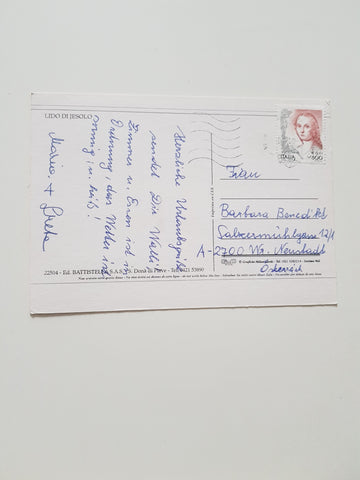 LIDO DI JESOLO
Herzliche Urlaubsgrüße
sendet Dir Walli
Zimmer u. Essen ist in
Ordnung, das Wetter ist
sonnig u. heiß!
Maria + Greta
ITALIA
800
Frau
Barbara Benedikt
Salzermühlgasse 12/1
A-2700 Wr. Neustadt
Österreich
22504 - Ed. BATTISTELLA S.A.S. - S. Donà di Piave - Tel. 0421 53890